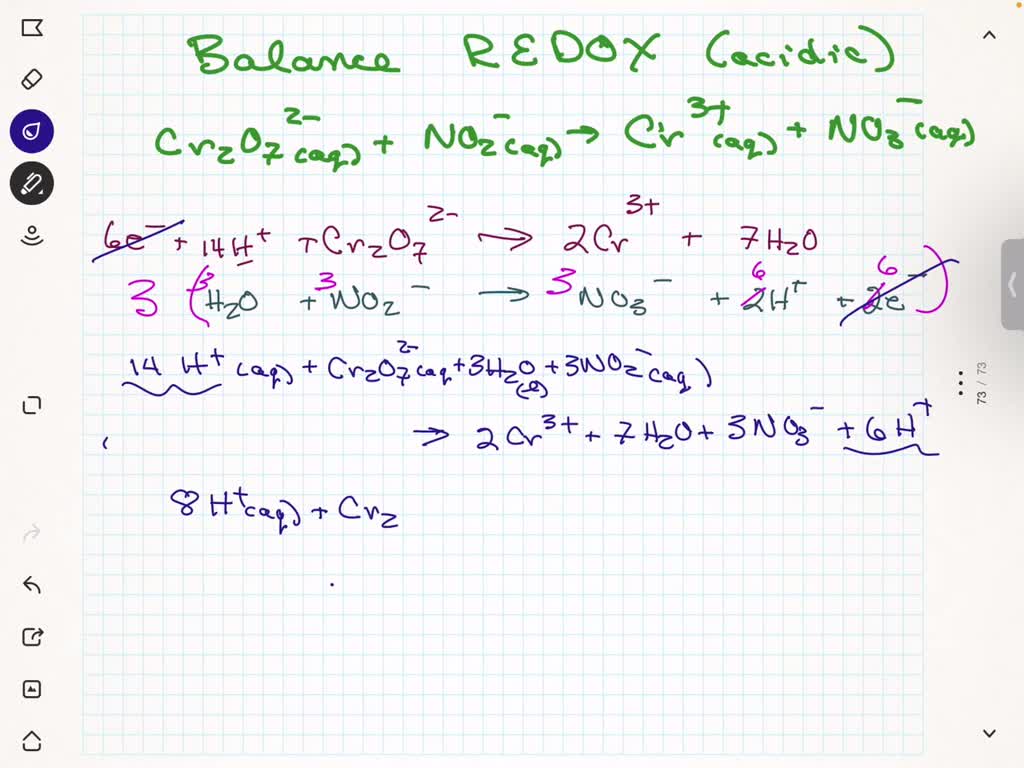 Balance REDOX (acidic)
Cr₂O₇²⁻(aq) + NO₂⁻(aq) → Cr³⁺(aq) + NO₃⁻(aq)
6e⁻ + 14H⁺ + Cr₂O₇²⁻ → 2Cr³⁺ + 7H₂O
3 (³H₂O + ³NO₂⁻ → 3NO₃⁻ + 6 2H⁺ + 6 2e⁻)
14 H⁺(aq) + Cr₂O₇²⁻(aq + 3H₂O(l) + 3NO₂⁻(aq)
→ 2Cr³⁺ + 7H₂O + 3NO₃⁻ + 6H⁺
8H⁺(aq) + Cr₂
73 / 73